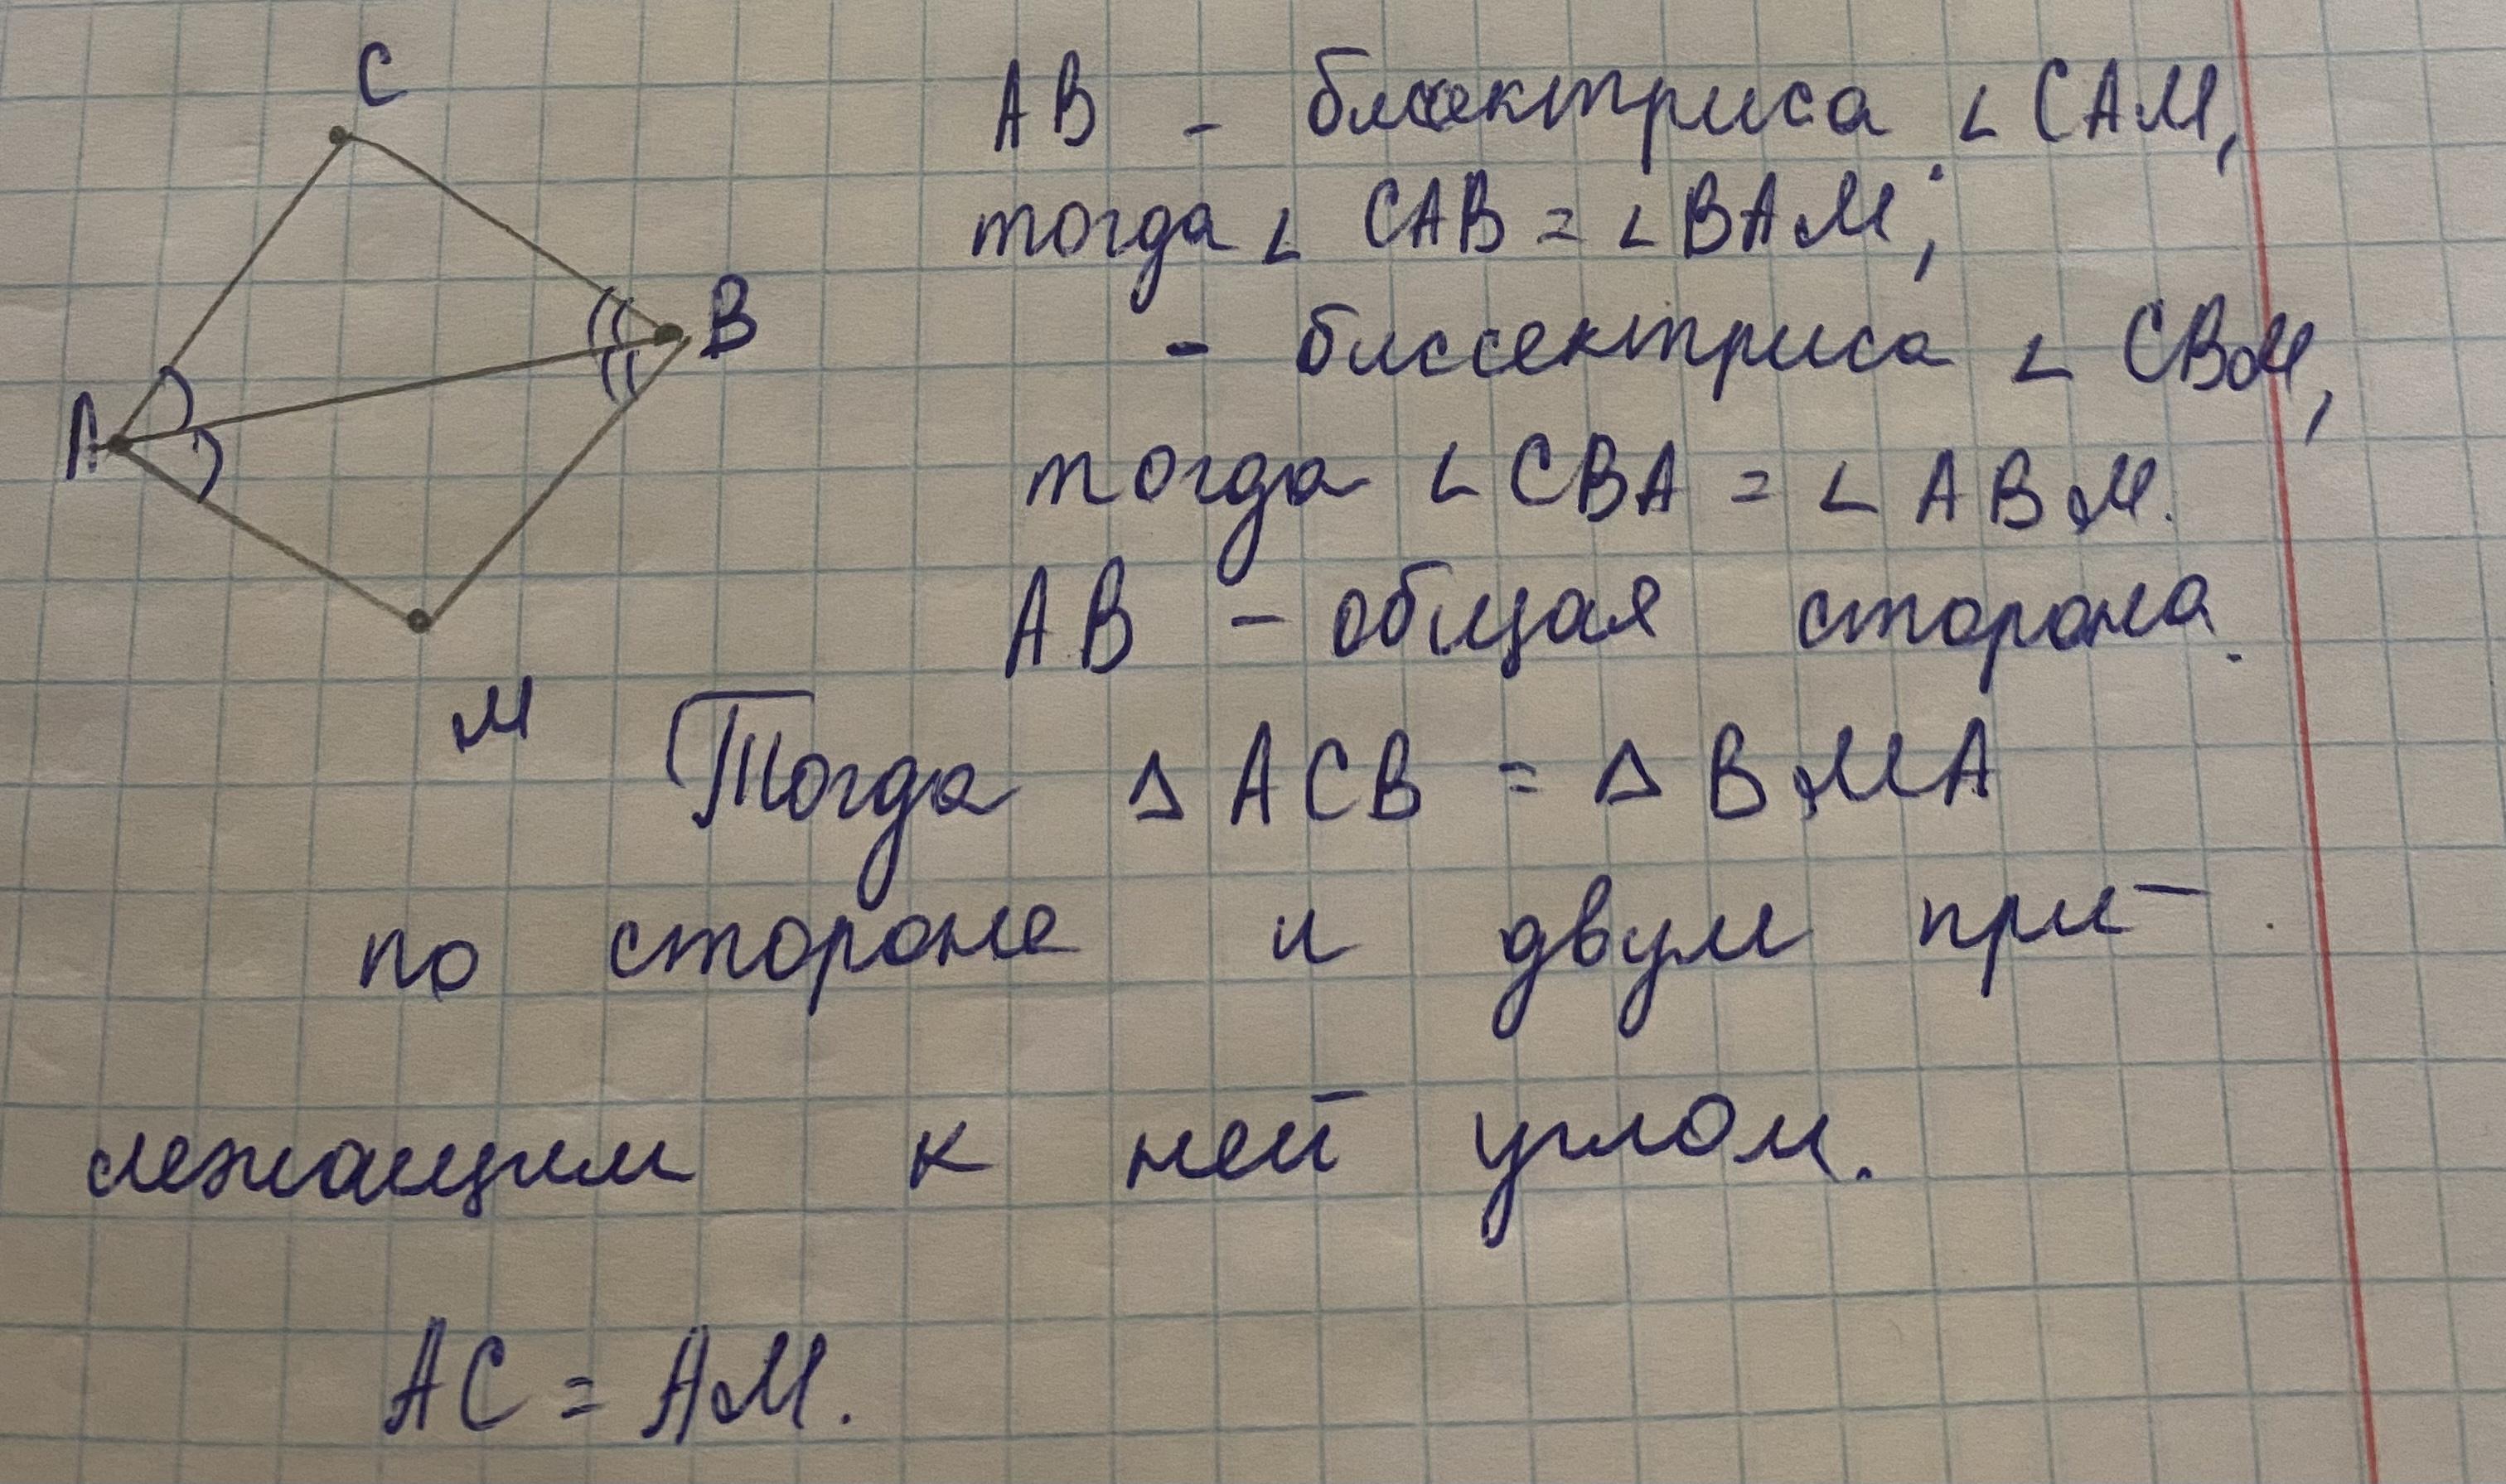 C
AB - биссектриса ∠ CAM,
тогда ∠ CAB = ∠ BAM;
B
- биссектриса ∠ CBM,
A
тогда ∠ CBA = ∠ ABM.
AB - общая сторона.
M
Тогда △ ACB = △ BMA
по стороне и двум при-
лежащим к ней углом.
AC = AM.